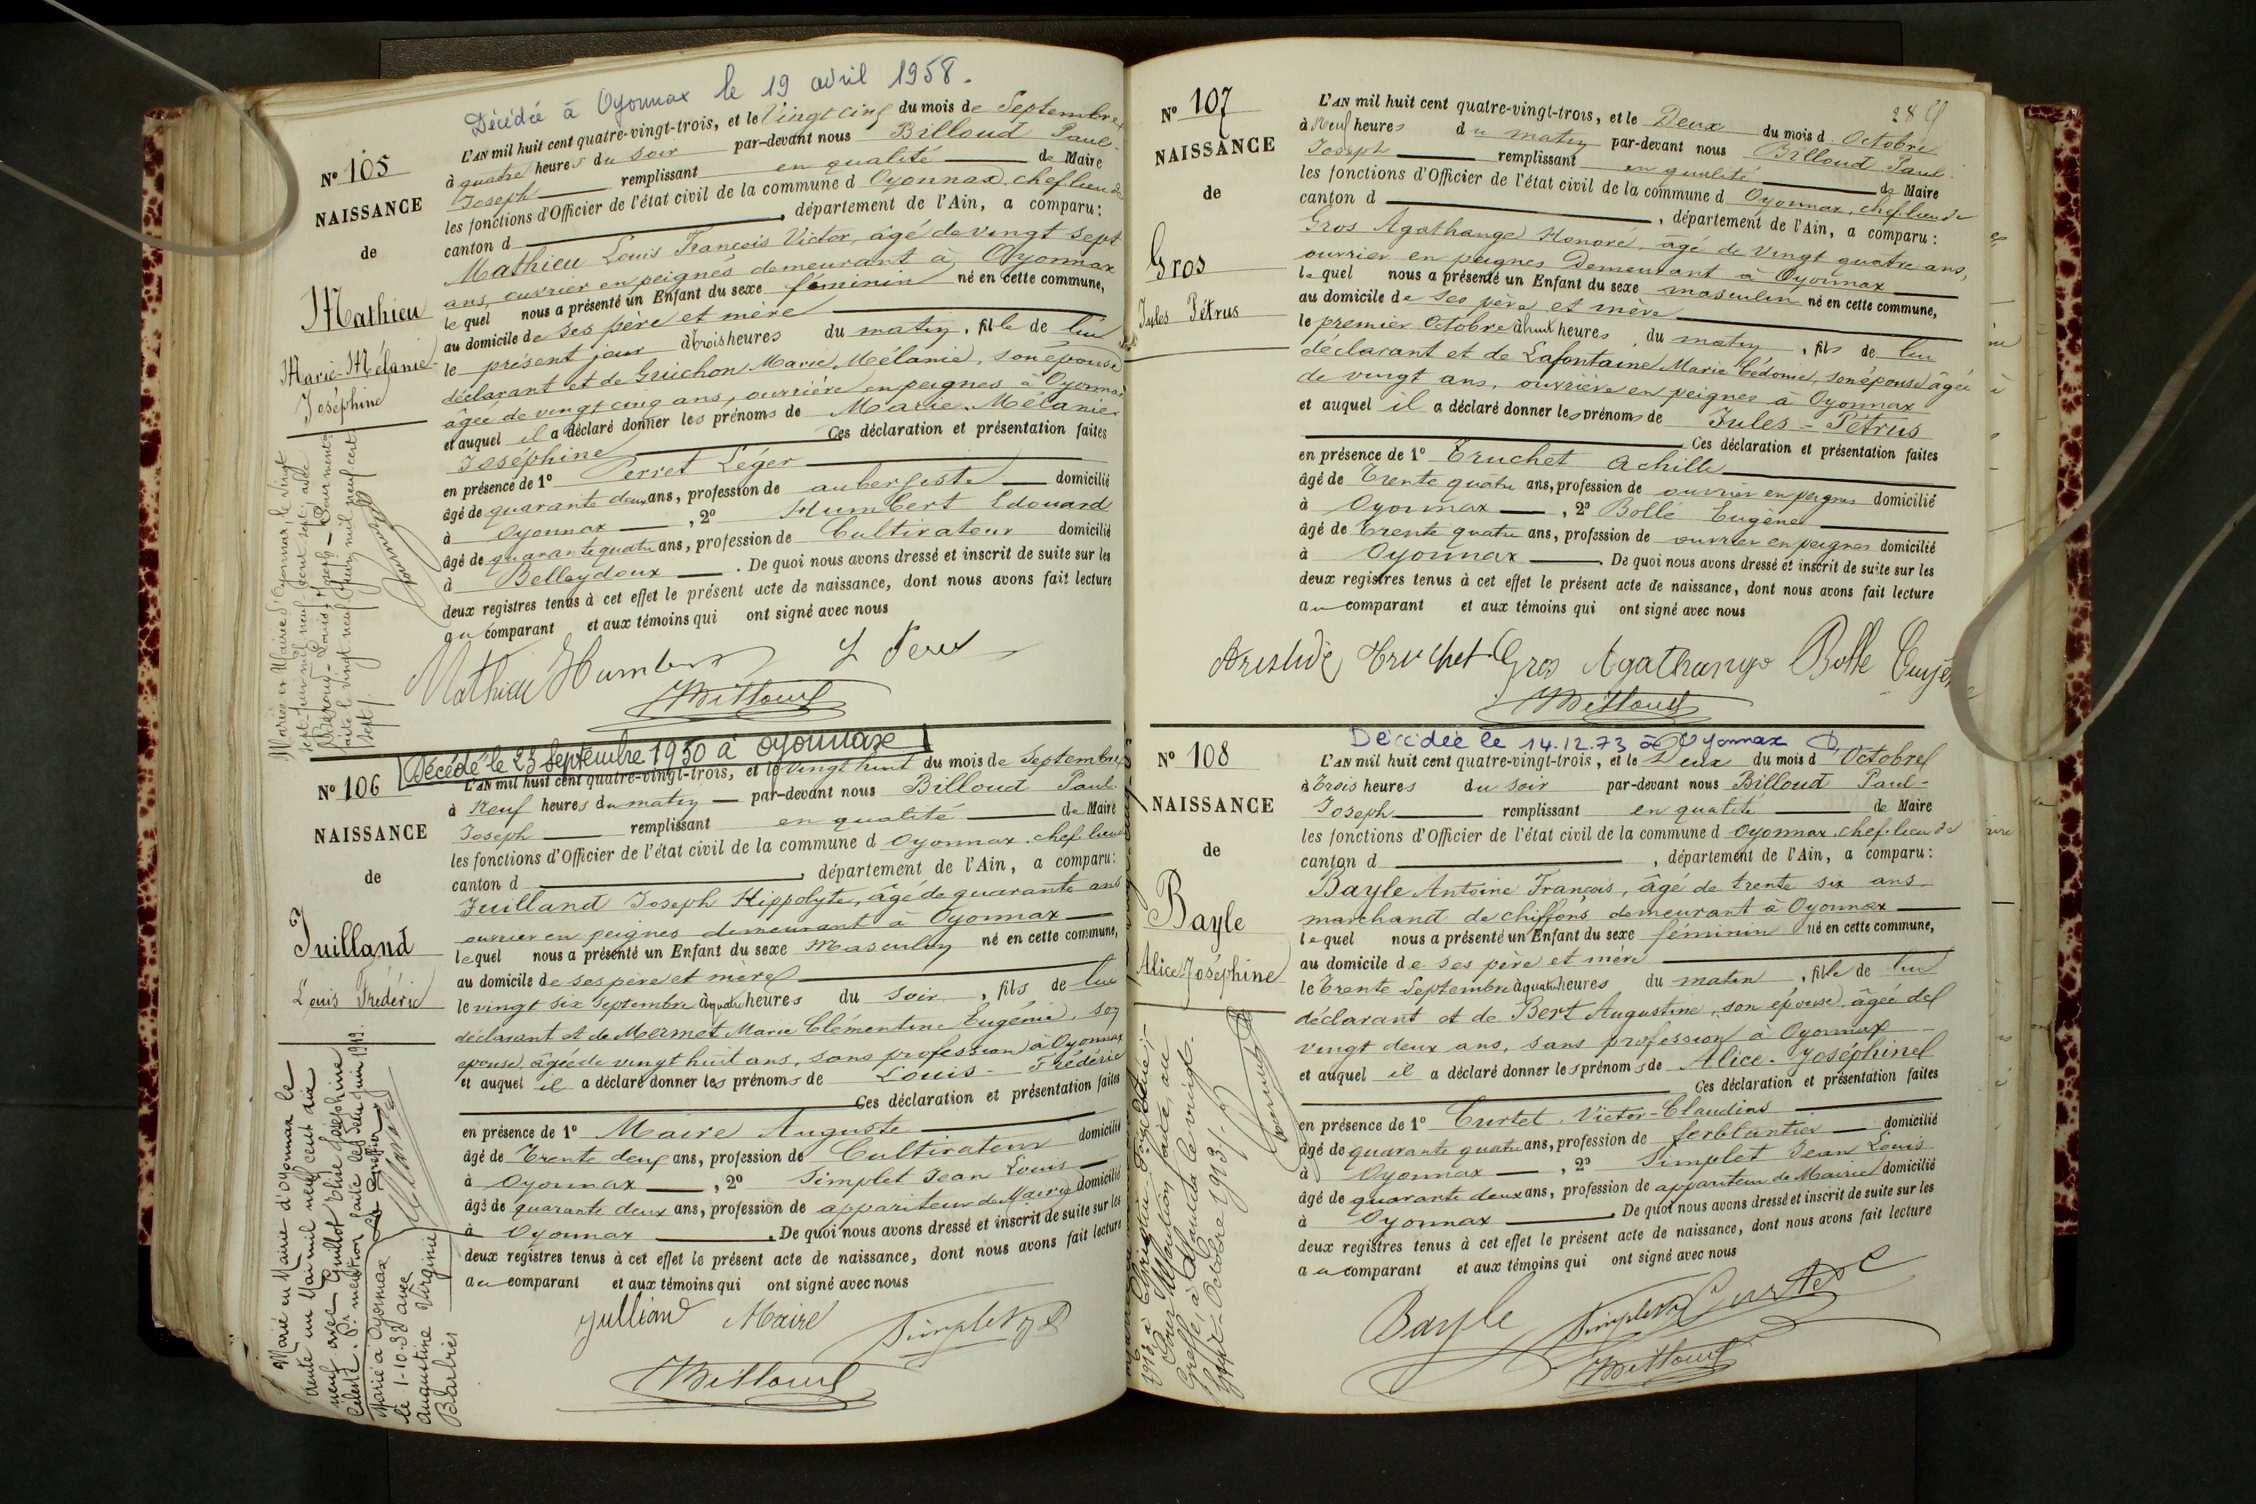 Décédée à Oyonnax le 19 avril 1958.
N° 105
NAISSANCE
de
Mathieu
Marie-Mélanie
Joséphine
L'AN mil huit cent quatre-vingt-trois, et le Vingt cinq du mois de Septembre
à quatre heures du soir par-devant nous Billoud Paul-
Joseph remplissant en qualité de Maire
les fonctions d'Officier de l'état civil de la commune d Oyonnax, chef lieu de
canton d , département de l'Ain, a comparu:
Mathieu Louis François Victor, âgé de vingt sept
ans, ouvrier en peignes demeurant à Oyonnax
le quel nous a présenté un Enfant du sexe féminin né en cette commune,
au domicile de ses père et mère
le présent jour à trois heures du matin, fille de lui
déclarant et de Guichon Marie Mélanie, son épouse
âgée de vingt cinq ans, ouvrière en peignes à Oyonnax
et auquel il a déclaré donner les prénoms de Marie-Mélanie-
Joséphine Ces déclaration et présentation faites
en présence de 1° Perret Léger
âgé de quarante deux ans, profession de aubergiste domicilié
à Oyonnax , 2° Humbert Edouard
âgé de quarante quatre ans, profession de Cultivateur domicilié
à Belleydoux . De quoi nous avons dressé et inscrit de suite sur les
deux registres tenus à cet effet le présent acte de naissance, dont nous avons fait lecture
au comparant et aux témoins qui ont signé avec nous
Mathieu Humbert L Perret
Billoud
Mariés en Mairie d'Oyonnax, le vingt
sept juin mil neuf cent sept, avec
Louis Joseph - Pour mention
faite le vingt neuf juin mil neuf cent
sept.
N° 106
NAISSANCE
de
Juilland
Louis Frédéric
Décédé le 23 Septembre 1950 à Oyonnax
L'AN mil huit cent quatre-vingt-trois, et le vingt huit du mois de Septembre
à Neuf heures du matin par-devant nous Billoud Paul-
Joseph remplissant en qualité de Maire
les fonctions d'Officier de l'état civil de la commune d Oyonnax, chef lieu
canton d , département de l'Ain, a comparu:
Juilland Joseph Hippolyte, âgé de quarante ans
ouvrier en peignes demeurant à Oyonnax
lequel nous a présenté un Enfant du sexe Masculin né en cette commune,
au domicile de ses père et mère
le vingt six Septembre à quatre heures du soir, fils de lui
déclarant et de Mermet Marie Clémentine Eugénie, son
épouse, âgée de vingt huit ans, sans profession à Oyonnax
et auquel il a déclaré donner les prénoms de Louis-Frédéric
Ces déclaration et présentation faites
en présence de 1° Maire Auguste
âgé de Trente deux ans, profession de Cultivateur domicilié
à Oyonnax , 2° Simplet Jean Louis
âgé de quarante deux ans, profession de appariteur de Mairie domicilié
à Oyonnax . De quoi nous avons dressé et inscrit de suite sur les
deux registres tenus à cet effet le présent acte de naissance, dont nous avons fait lecture
au comparant et aux témoins qui ont signé avec nous
Julliand Maire Simplet
Billoud
Marié en Mairie d'Oyonnax le
trente un Mai mil neuf cent dix
neuf avec Guillot Elise Joséphine
Céleste. Pr. mention faite le deux juin 1919.
Le Greffier
Marié à Oyonnax
le 1-10-32 avec
Augustine Virginie
Barbier
28
N° 107
NAISSANCE
de
Gros
Jules Pétrus
L'AN mil huit cent quatre-vingt-trois, et le Deux du mois d Octobre
à Neuf heures du matin par-devant nous Billoud Paul-
Joseph remplissant en qualité de Maire
les fonctions d'Officier de l'état civil de la commune d Oyonnax, chef lieu de
canton d , département de l'Ain, a comparu:
Gros Agathange Honoré, âgé de Vingt quatre ans,
ouvrier en peignes Demeurant à Oyonnax
le quel nous a présenté un Enfant du sexe masculin né en cette commune,
au domicile de ses père et mère
le premier Octobre à huit heures du matin, fils de lui
déclarant et de Lafontaine Marie Cédonie, son épouse âgée
de vingt ans, ouvrière en peignes à Oyonnax
et auquel il a déclaré donner les prénoms de Jules-Pétrus
Ces déclaration et présentation faites
en présence de 1° Truchet Achille
âgé de Trente quatre ans, profession de ouvrier en peignes domicilié
à Oyonnax , 2° Bollé Eugène
âgé de Trente quatre ans, profession de ouvrier en peignes domicilié
à Oyonnax . De quoi nous avons dressé et inscrit de suite sur les
deux registres tenus à cet effet le présent acte de naissance, dont nous avons fait lecture
au comparant et aux témoins qui ont signé avec nous
Aristide Truchet Gros Agathange Bolle Eugène
Billoud
N° 108
NAISSANCE
de
Bayle
Alice-Joséphine
Décédée le 14.12.73 à Oyonnax
L'AN mil huit cent quatre-vingt-trois, et le Deux du mois d Octobre
à Trois heures du soir par-devant nous Billoud Paul-
Joseph remplissant en qualité de Maire
les fonctions d'Officier de l'état civil de la commune d Oyonnax, chef-lieu de
canton d , département de l'Ain, a comparu:
Bayle Antoine François, âgé de trente six ans
marchand de chiffons demeurant à Oyonnax
lequel nous a présenté un Enfant du sexe féminin né en cette commune,
au domicile de ses père et mère
le Trente Septembre à quatre heures du matin, fille de lui
déclarant et de Bert Augustine, son épouse, âgée de
vingt deux ans, sans profession à Oyonnax
et auquel il a déclaré donner les prénoms de Alice-Joséphine
Ces déclaration et présentation faites
en présence de 1° Curtet Victor-Claudius
âgé de quarante quatre ans, profession de ferblantier domicilié
à Oyonnax , 2° Simplet Jean Louis
âgé de quarante deux ans, profession de appariteur de Mairie domicilié
à Oyonnax . De quoi nous avons dressé et inscrit de suite sur les
deux registres tenus à cet effet le présent acte de naissance, dont nous avons fait lecture
au comparant et aux témoins qui ont signé avec nous
Bayle Simplet Curtet
Billoud
Pour Mention faite, au
Greffe, à Nantua le vingt-
Octobre 1913.